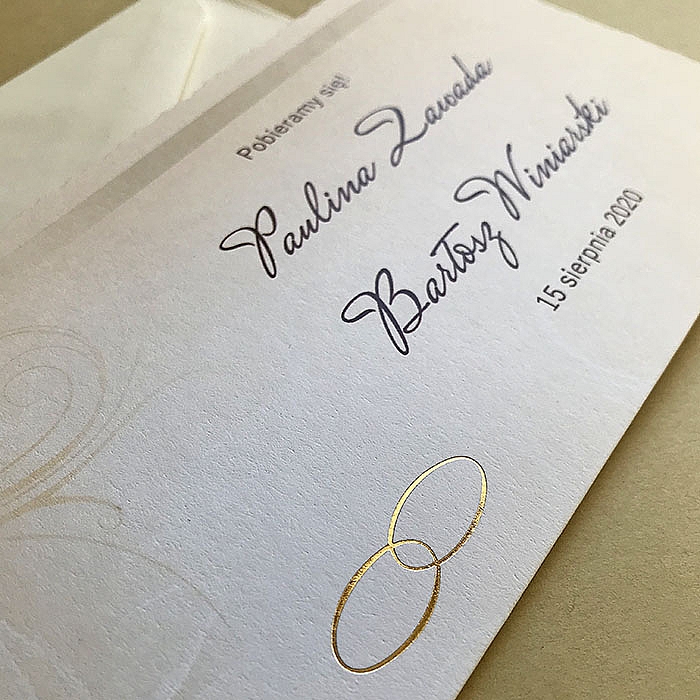 Pobieramy się!
Paulina Zawada
Bartosz Winiarski
15 sierpnia 2020